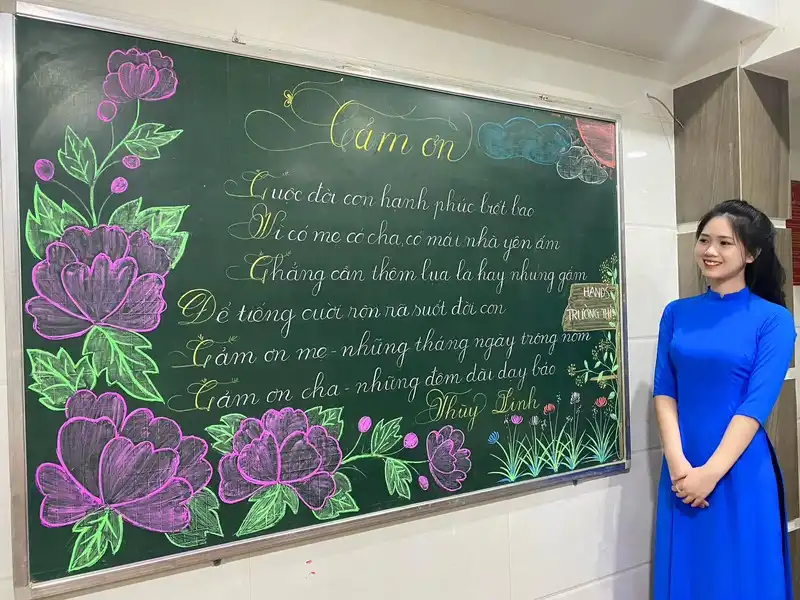 Cảm ơn
Cuộc đời con hạnh phúc biết bao
Vì có mẹ có cha, có mái nhà yên ấm
Chẳng cần thêm lụa là hay nhung gấm
Để tiếng cười rộn rã suốt đời con
Cảm ơn mẹ - những tháng ngày trông nom
Cảm ơn cha - những đêm dài dạy bảo
Thùy Linh
HANDS
TRƯỜNG THI